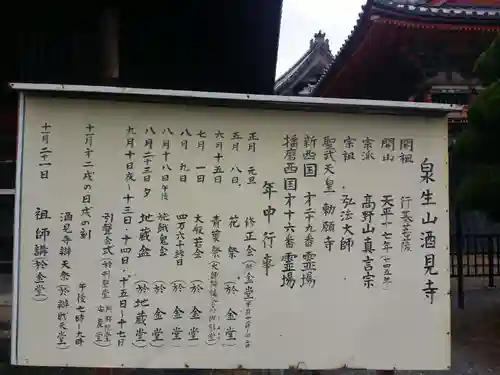 泉生山酒見寺
開祖 行基菩薩
開山 天平十七年(七四五年)
宗派 高野山真言宗
宗祖 弘法大師
聖武天皇 勅願寺
新西国 才二十九番霊場
播磨西国 才十六番霊場
年中行事
正月 元旦 修正会(於 金堂)
五月 八日 花祭 (於 金堂)
六月十五日 青葉祭
七月 一日 大般若会
八月 九日 四万六千日 (於 金堂)
八月十八日 午後 施餓鬼会 (於 金堂)
八月二十三日 夕 地蔵盆 (於 地蔵堂)
九月十日夜~十三日・十四日・十五日~十七日
引聲会式
十一月十二歳の日戌の刻 午後七時~九時
酒見寺辯天祭 (於 辯財天堂)
十二月二十一日 祖師講(於会堂)